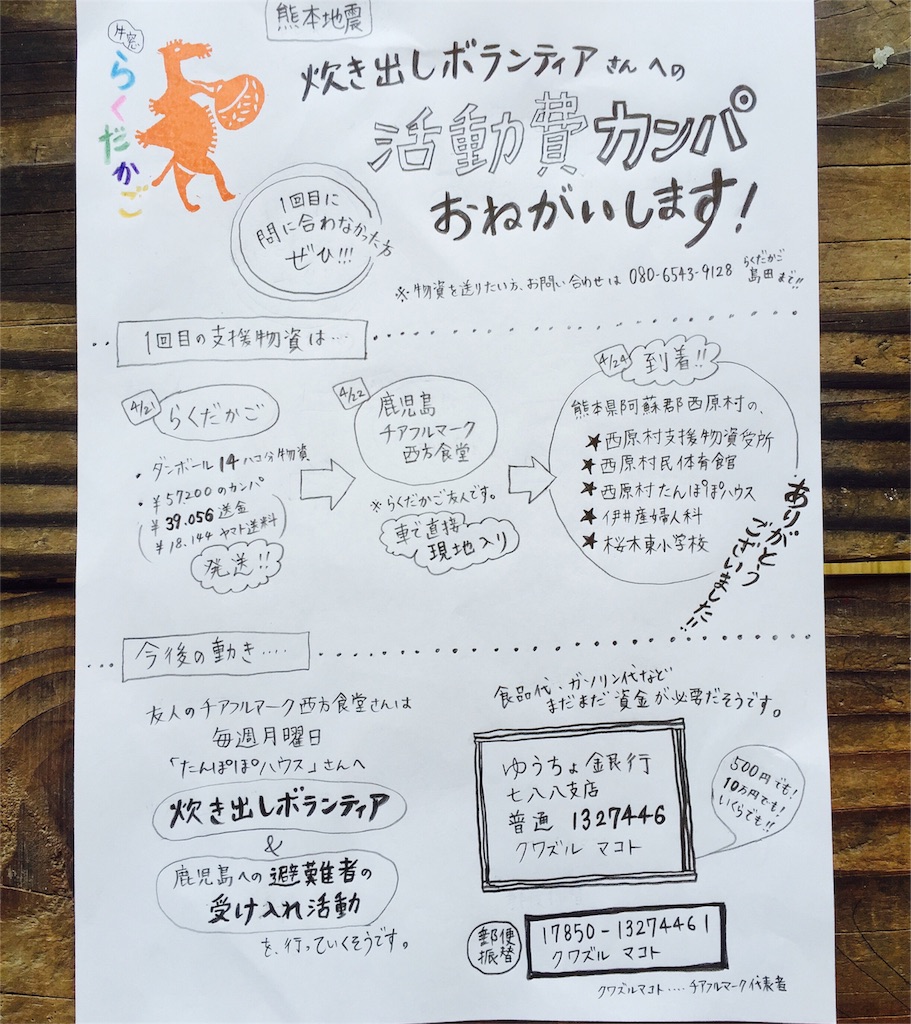 熊本地震
牛窓
らくだかご
炊き出しボランティアさんへの
活動費カンパ
おねがいします!
1回目に
間に合わなかった方
ぜひ!!!
※物資を送りたい方、お問い合わせは 080-6543-9128 らくだかご
島田まで!!
1回目の支援物資は…
4/21
らくだかご
・ダンボール14ハコ分物資
・¥57200のカンパ
(¥39.056 送金
¥18.144 ヤマト送料)
発送!!
4/22
鹿児島
チアフルマーク
西方食堂
※らくだかご友人です。
車で直接
現地入り
4/24
到着!!
熊本県阿蘇郡西原村の、
★西原村支援物資役所
★西原村民体育館
★西原村たんぽぽハウス
★伊井産婦人科
★桜木東小学校
ありがとう
ございました!!
今後の動き....
友人のチアフルマーク西方食堂さんは
毎週月曜日
「たんぽぽハウス」さんへ
炊き出しボランティア
&
鹿児島への避難者の
受け入れ活動
を、行っていくそうです。
食品代、ガソリン代など
まだまだ資金が必要だそうです。
ゆうちょ銀行
七八八支店
普通 1327446
クワズル マコト
500円でも!
10万円でも!
いくらでも!!
郵便
振替
17850-13274461
クワズル マコト
クワズルマコト....チアフルマーク代表者